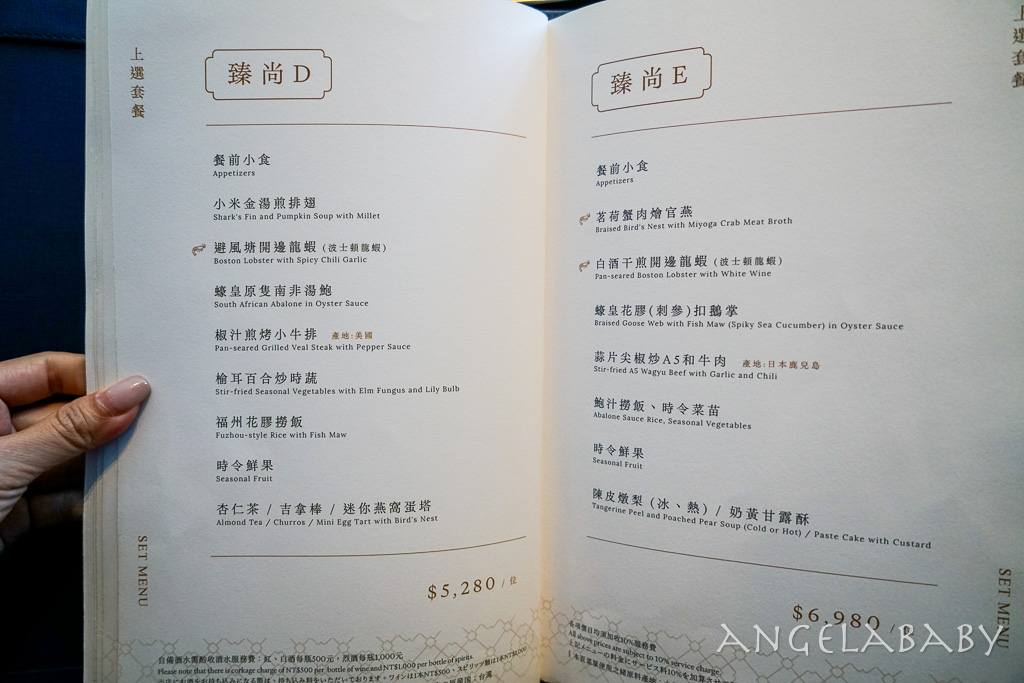 上選套餐
臻尚D
餐前小食
Appetizers
小米金湯煎排翅
Shark's Fin and Pumpkin Soup with Millet
避風塘開邊龍蝦 (波士頓龍蝦)
Boston Lobster with Spicy Chili Garlic
蠔皇原隻南非湯鮑
South African Abalone in Oyster Sauce
椒汁煎烤小牛排 產地:美國
Pan-seared Grilled Veal Steak with Pepper Sauce
榆耳百合炒時蔬
Stir-fried Seasonal Vegetables with Elm Fungus and Lily Bulb
福州花膠撈飯
Fuzhou-style Rice with Fish Maw
時令鮮果
Seasonal Fruit
杏仁茶 / 吉拿棒 / 迷你燕窩蛋塔
Almond Tea / Churros / Mini Egg Tart with Bird's Nest
$5,280 / 位
SET MENU
自備酒水需酌收酒水服務費：紅、白酒每瓶500元，烈酒每瓶1,000元
Please note that there is corkage charge of NT$500 per bottle of wine and NT$1,000 per bottle of spirits.
上選套餐
臻尚E
餐前小食
Appetizers
茗荷蟹肉燴官燕
Braised Bird's Nest with Miyoga Crab Meat Broth
白酒干煎開邊龍蝦 (波士頓龍蝦)
Pan-seared Boston Lobster with White Wine
蠔皇花膠(刺參)扣鵝掌
Braised Goose Web with Fish Maw (Spiky Sea Cucumber) in Oyster Sauce
蒜片尖椒炒A5和牛肉 產地:日本鹿兒島
Stir-fried A5 Wagyu Beef with Garlic and Chili
鮑汁撈飯、時令菜苗
Abalone Sauce Rice, Seasonal Vegetables
時令鮮果
Seasonal Fruit
陳皮燉梨 (冰、熱) / 奶黃甘露酥
Tangerine Peel and Poached Pear Soup (Cold or Hot) / Paste Cake with Custard
$6,980 /
SET MENU
各項價目均須加收10%服務費
All above prices are subject to 10% service charge.
ANGELABABY